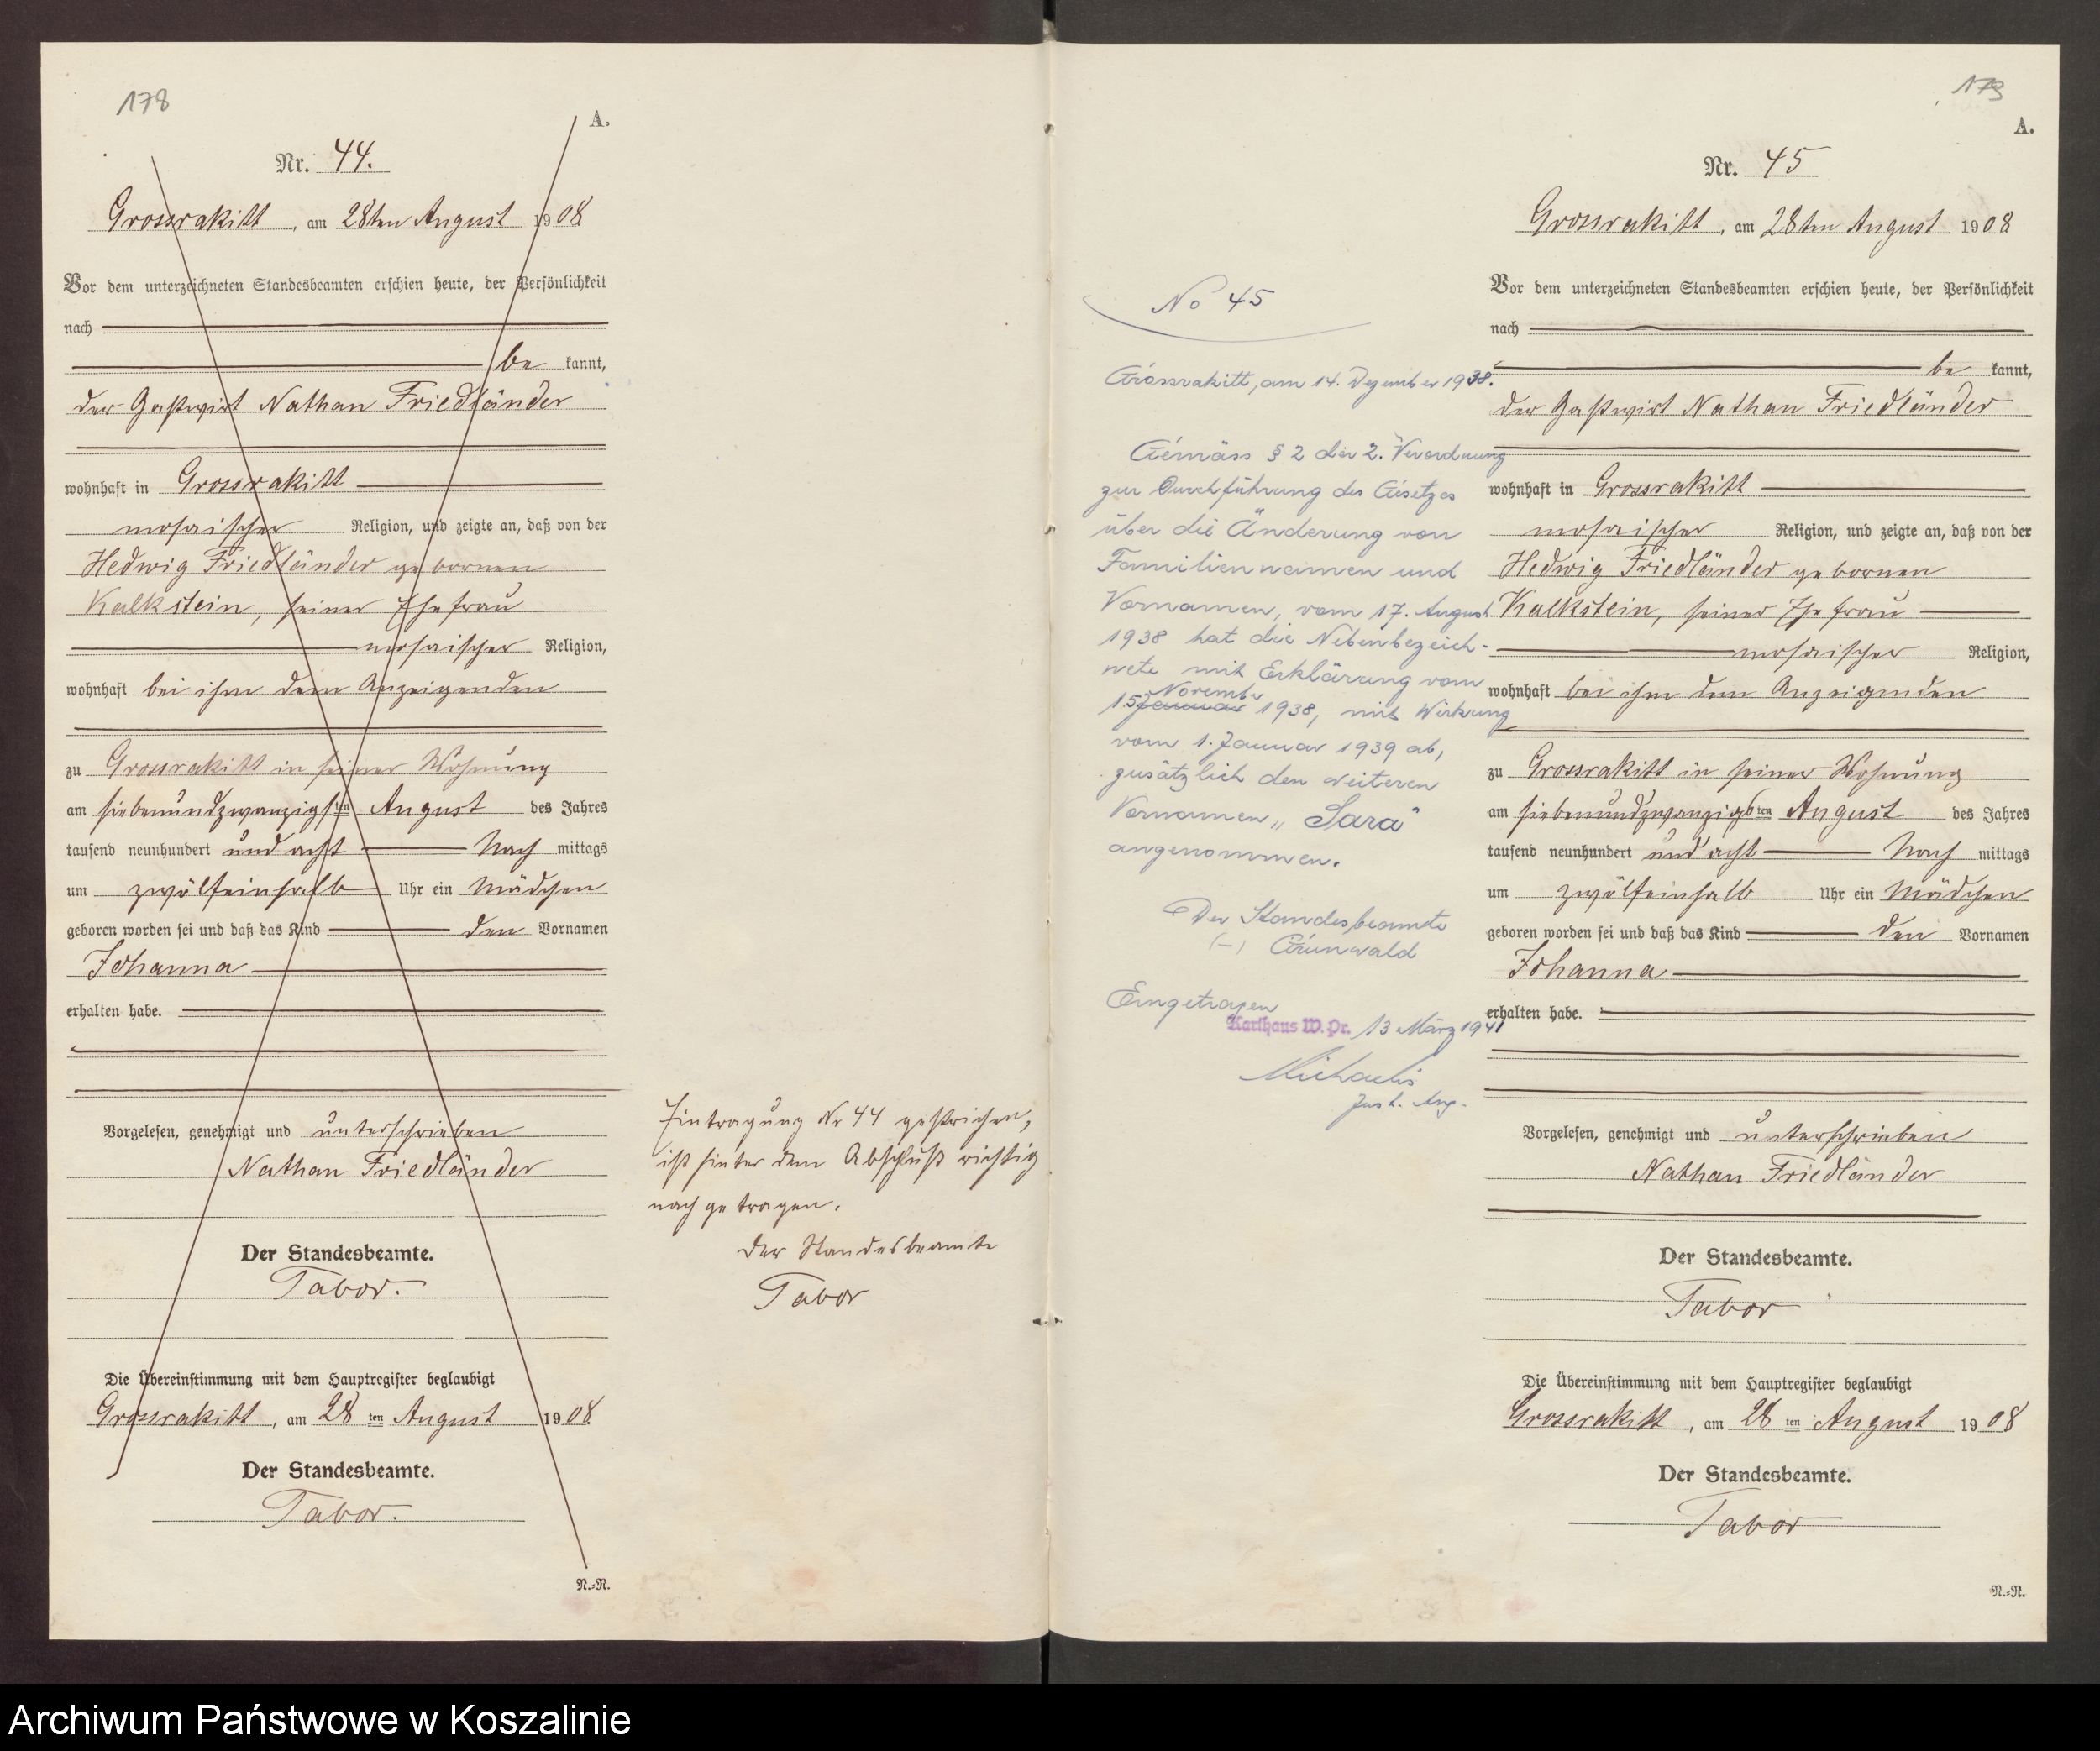 178
A.
Nr. 44.
Grossrakitt, am 28ten August 1908
Vor dem unterzeichneten Standesbeamten erschien heute, der Persönlichkeit
nach
be kannt,
der Gastwirt Nathan Friedländer
wohnhaft in Grossrakitt
mosaischer Religion, und zeigte an, daß von der
Hedwig Friedländer gebornen
Kalkstein, seiner Ehefrau
mosaischer Religion,
wohnhaft bei ihm dem Anzeigenden
zu Grossrakitt in seiner Wohnung
am siebenundzwanzigsten August des Jahres
tausend neunhundert und acht Nach mittags
um zwölfeinhalb Uhr ein Mädchen
geboren worden sei und daß das Kind den Vornamen
Johanna
erhalten habe.
Vorgelesen, genehmigt und unterschrieben
Nathan Friedländer
Der Standesbeamte.
Tabor.
Die Übereinstimmung mit dem Hauptregister beglaubigt
Grossrakitt, am 28 ten August 1908
Der Standesbeamte.
Tabor.
N.=R.
Eintragung Nr 44 gestrichen,
ist hinter dem Abschluß richtig
nachgetragen.
Der Standesbeamte
Tabor
No 45
Grossrakitt, am 14. Dezember 1938.
Gemäss § 2 der 2. Verordnung
zur Durchführung des Gesetzes
über die Änderung von
Familiennamen und
Vornamen, vom 17. August
1938 hat die Nebenbezeich-
nete mit Erklärung vom
November
15. Januar 1938, mit Wirkung
vom 1. Januar 1939 ab,
zusätzlich den weiteren
Vornamen „Sara“
angenommen.
Der Standesbeamte
(-) Grunwald
Eingetragen
Karthaus W.Pr. 13 März 1941
Michaelis
Just. Ang.
179
A.
Nr. 45
Grossrakitt, am 28ten August 1908
Vor dem unterzeichneten Standesbeamten erschien heute, der Persönlichkeit
nach
be kannt,
der Gastwirt Nathan Friedländer
wohnhaft in Grossrakitt
mosaischer Religion, und zeigte an, daß von der
Hedwig Friedländer gebornen
Kalkstein, seiner Ehefrau
mosaischer Religion,
wohnhaft bei ihm dem Anzeigenden
zu Grossrakitt in seiner Wohnung
am siebenundzwanzigsten August des Jahres
tausend neunhundert und acht Nach mittags
um zwölfeinhalb Uhr ein Mädchen
geboren worden sei und daß das Kind den Vornamen
Johanna
erhalten habe.
Vorgelesen, genehmigt und unterschrieben
Nathan Friedländer
Der Standesbeamte.
Tabor
Die Übereinstimmung mit dem Hauptregister beglaubigt
Grossrakitt, am 28 ten August 1908
Der Standesbeamte.
Tabor
N.=R.
Archiwum Państwowe w Koszalinie